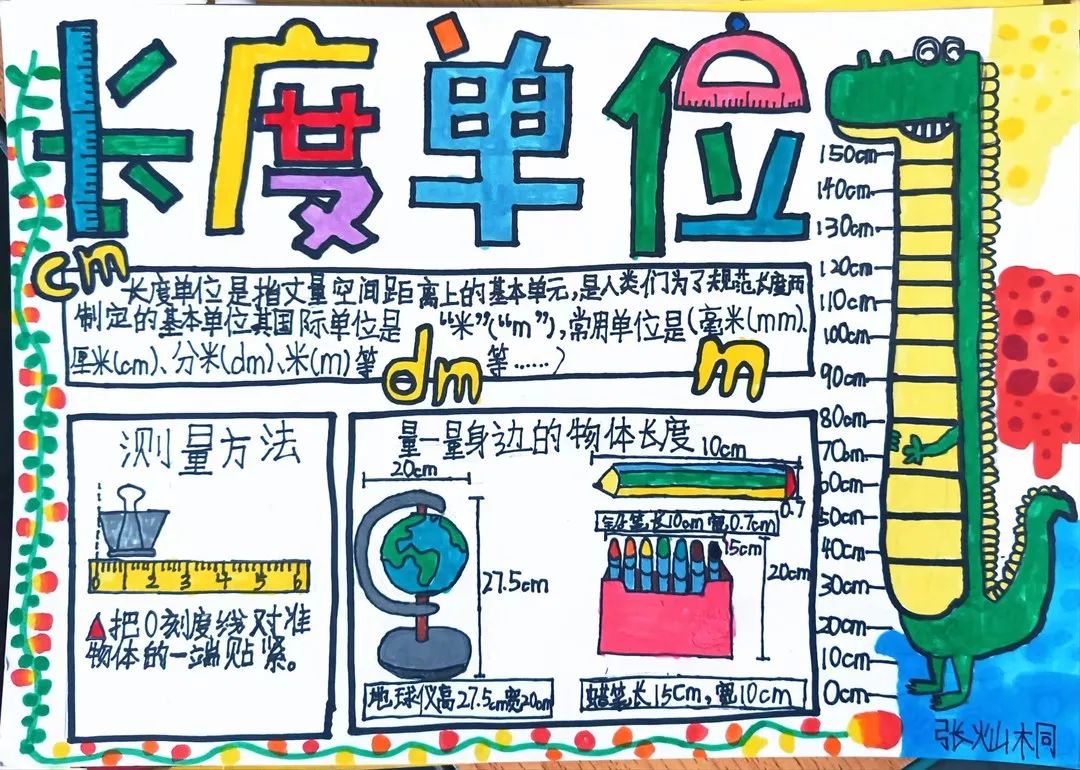 长度单位
cm
长度单位是指丈量空间距离上的基本单元,是人类们为了规范长度而
制定的基本单位其国际单位是 “米”(“m”),常用单位是(毫米(mm)、
厘米(cm)、分米(dm)、米(m)等 等……)
dm
m
测量方法
0 1 2 3 4 5 6
把0刻度线对准
物体的一端贴紧。
量一量身边的物体长度
20cm
27.5cm
地球仪高27.5cm宽20cm
10cm
0.7
铅笔长10cm宽0.7cm
15cm
20cm
蜡笔长15cm,宽10cm
150cm
140cm
130cm
120cm
110cm
100cm
90cm
80cm
70m
60cm
50cm
40cm
30cm
20cm
10cm
0cm
张灿桐